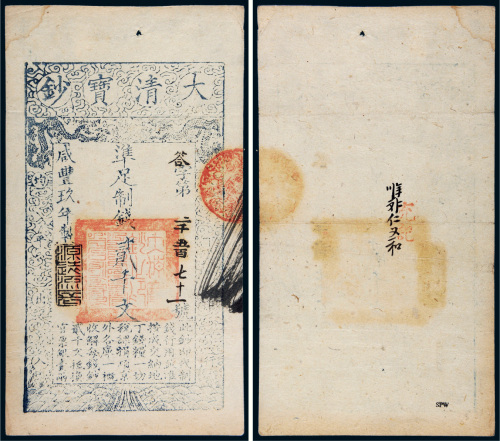 大清寶鈔
荅字第二千五百七十一號
準足制錢貳千文
咸豐玖年製
此鈔即代制
錢行用並准
按成交納地
丁錢糧一切
稅課捐項京
外各庫一概
收解每錢鈔
貳千文抵換
官票銀壹兩
仁又和
SPW